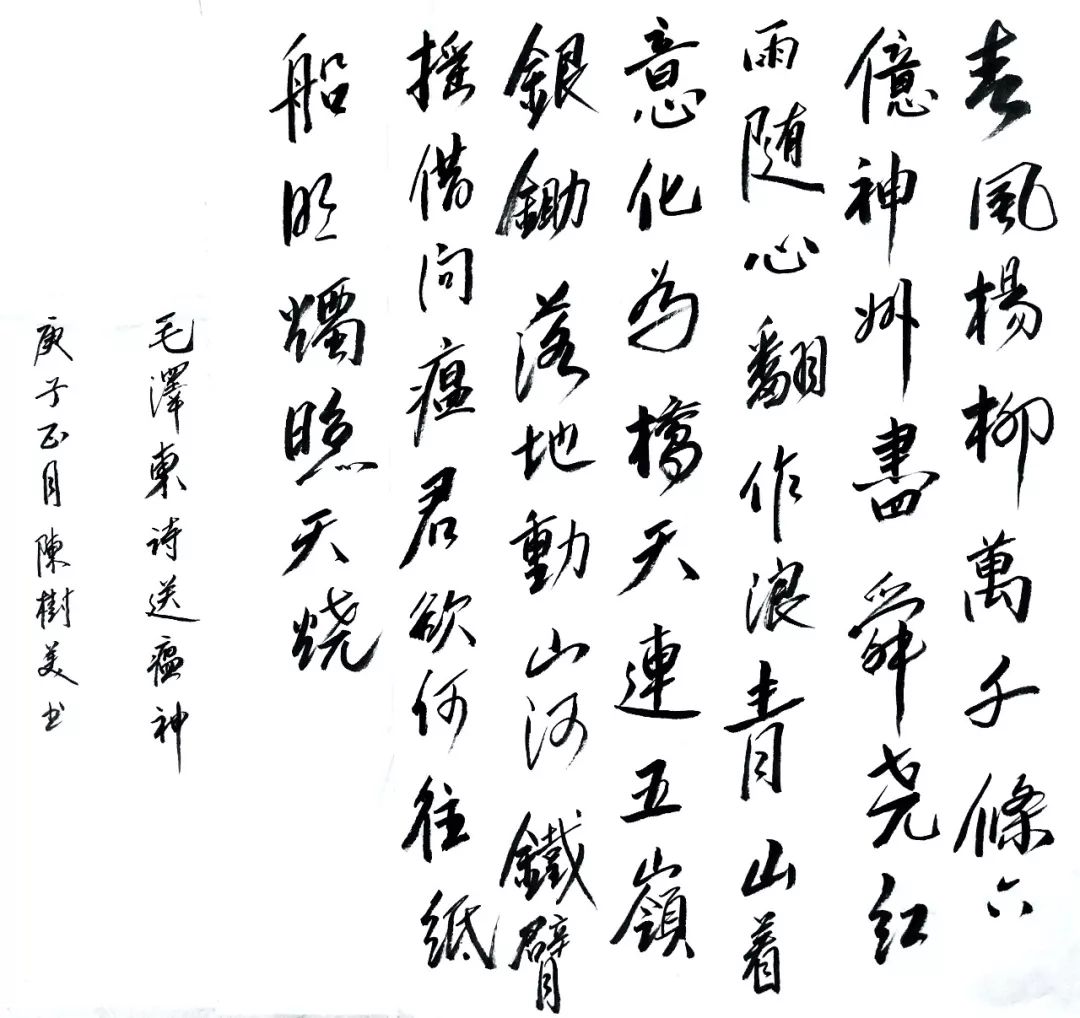 春風楊柳萬千條六
億神州盡舜尧红
雨随心翻作浪青山着
意化为橋天連五嶺
銀鋤落地動山河鐵臂
摇借问瘟君欲何往紙
船明燭照天烧
毛澤東诗送瘟神
庚子正月陳樹美书